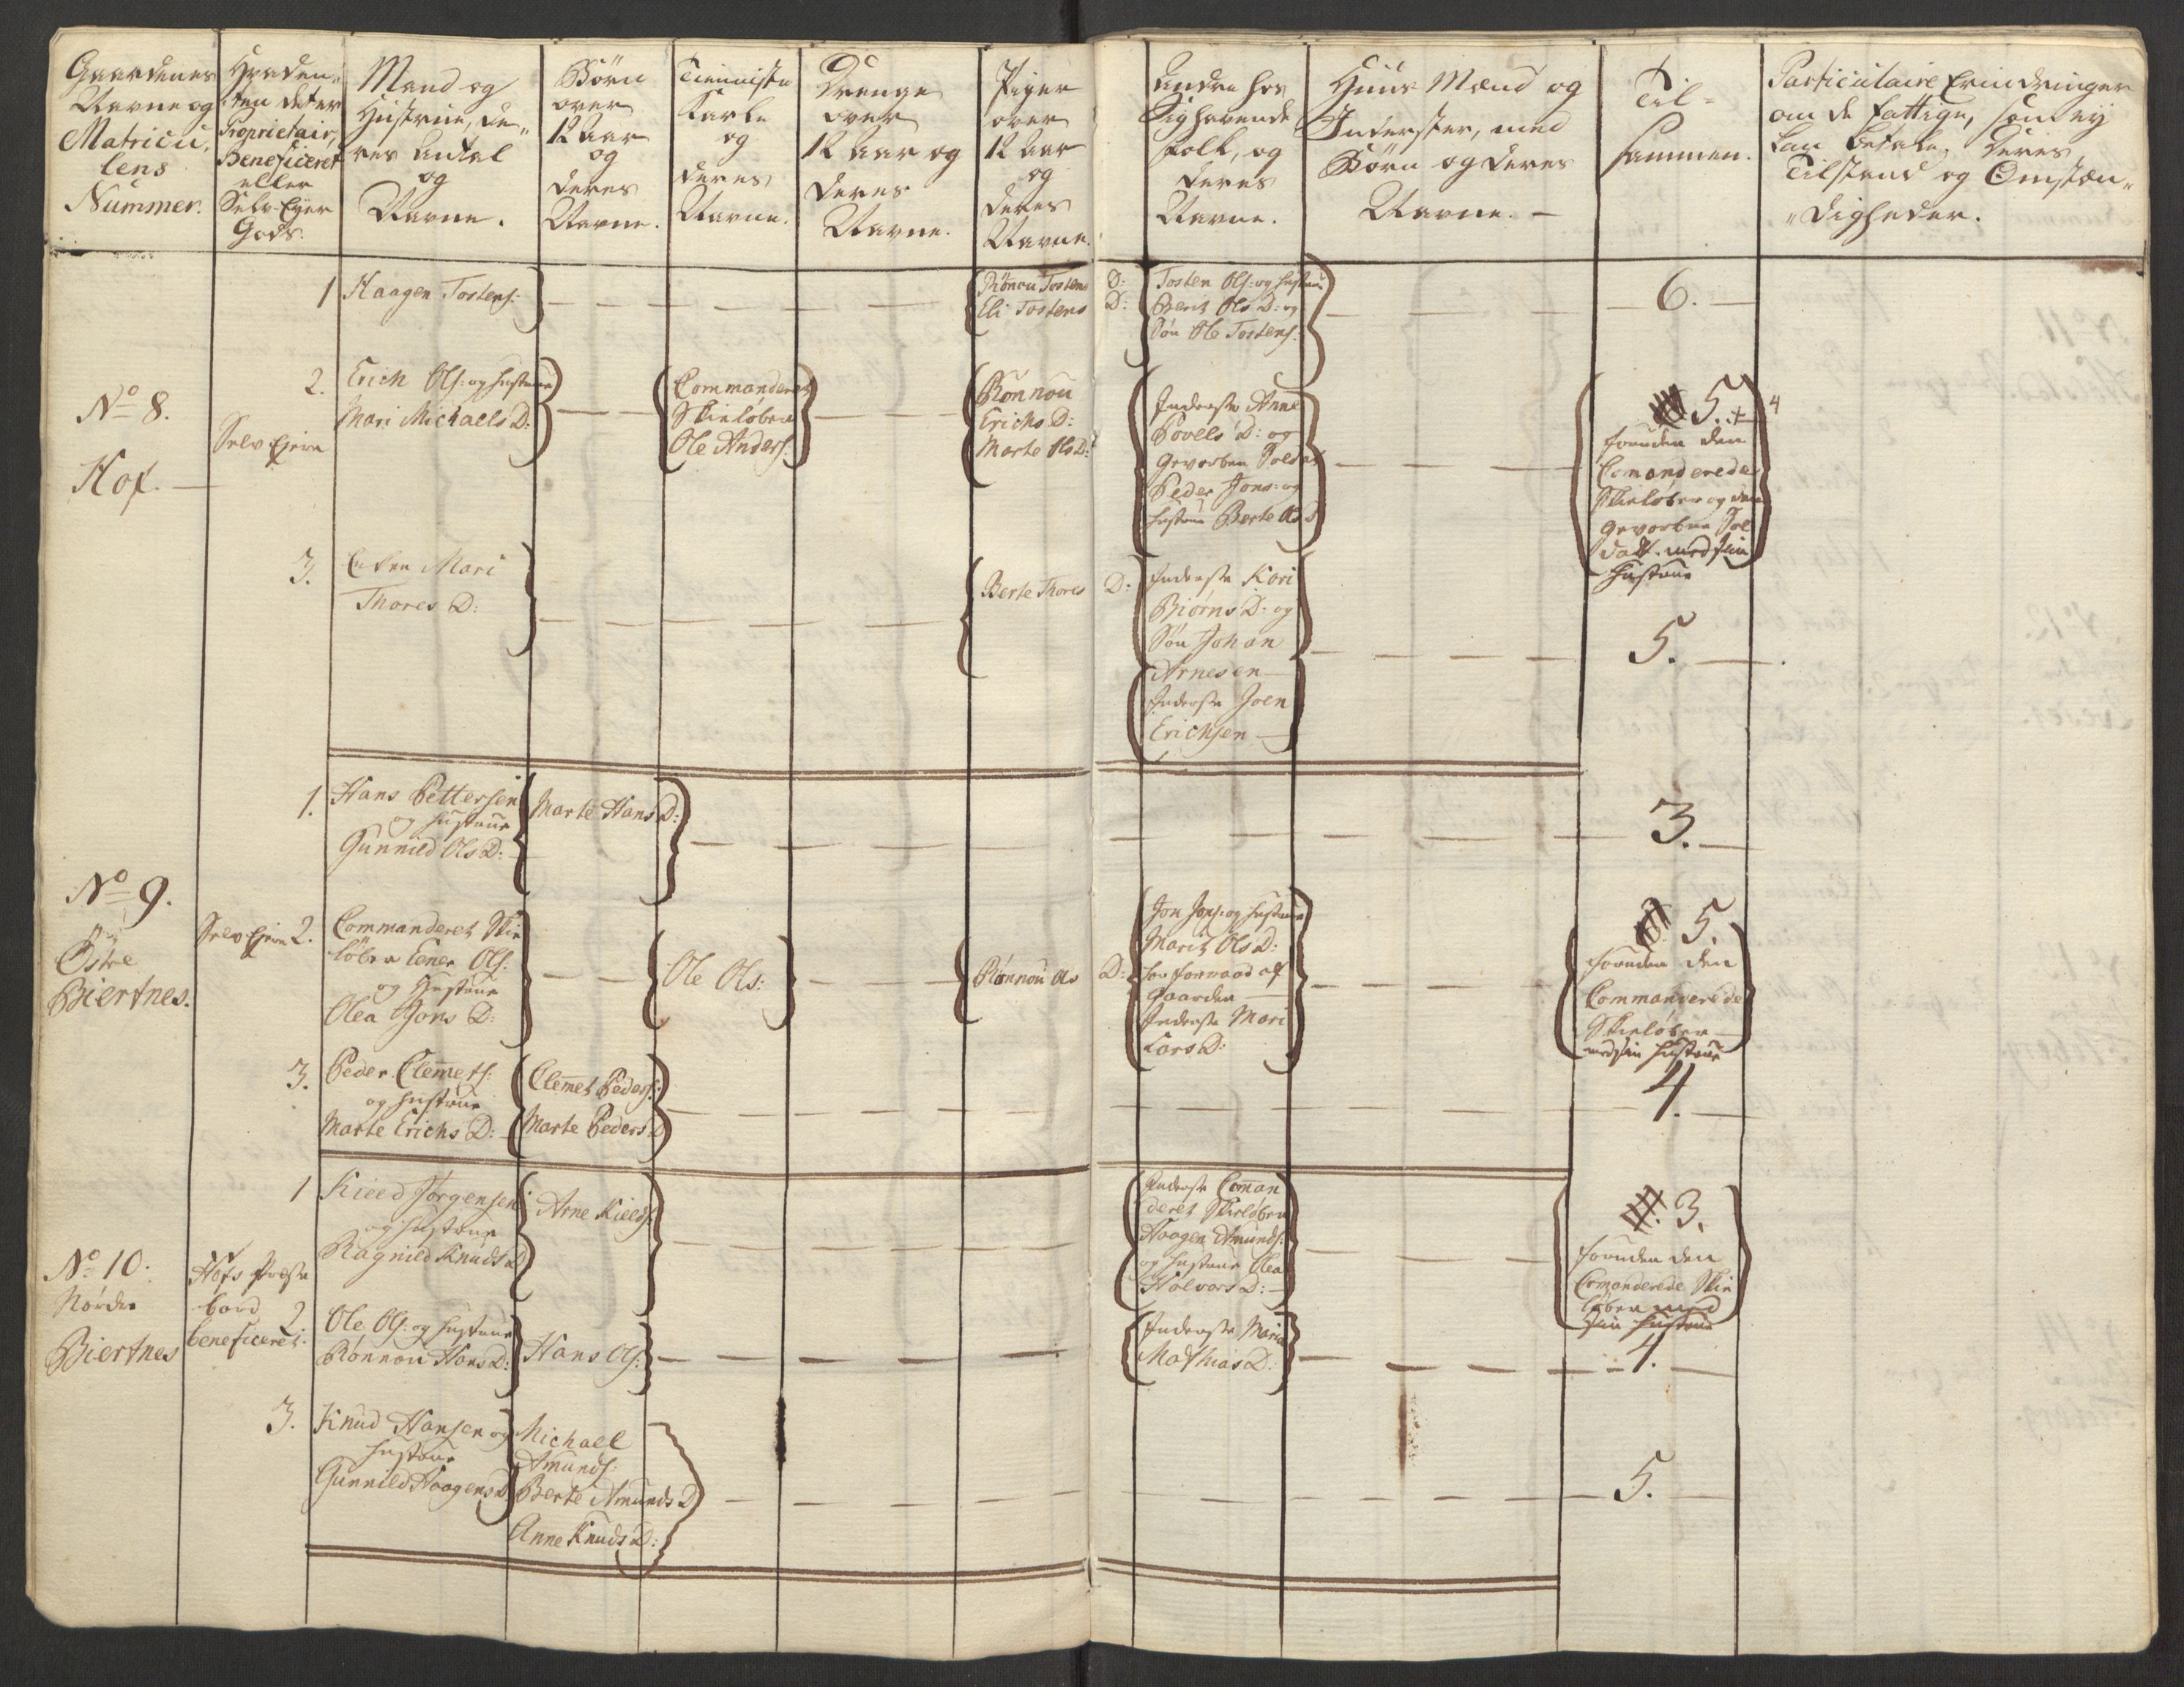 Gaardenes
Navne og
Matricu,
lens
Nummer.
Hvad en,,
ten det er
Proprietair,
Beneficeret
eller
Selv-Eyer
Gods.
Mand og
Hustrue, de,,
res Antal
og
Navne.
Börn
over
12 Aar
og
deres
Navne.
Tienniste
Karle
og
deres
Navne.
Drenge
over
12 Aar og
deres
Navne.
Piger
over
12 Aar
og
deres
Navne.
Andre hos
Sig havende
folk, og
deres
Navne.
Huus Mænd og
Inderster, med
Börn og deres
Navne. –
Til-
sammen.
Particulaire Erindringer
om de fattige, som ey
kan betale. Deres
Tilstand og Omstæn,,
,,digheder.
1 Haagen Tostens:
Rönnou Tostens D:
Eli Tostens D:
Tosten Ols: og hustrue
Berit Ols D: og
Søn Ole Tostens:
6.
No 8.
Hof.
Selv Ejere
2. Erich Ols: og hustrue
Mari Michaels D:
Commanderet
Skielöber
Ole Anders:
Rönnou
Erichs D:
Marte Ols D:
Inderste Anne
Povels D: og
gevorben Soldat
Peder Jons: og
hustrue Berte Ols D
5. + 4
foruden den
Comanderede
Skielöber og den
gevorbne Sol
dat med sin
hustrue
3. Enken Mari
Thores D:
Berte Thores D:
Inderste Kari
Biörns D: og
Søn Johan
Arnesen
Inderste Joen
Erichsen
5.
1. Hans Pettersen
og hustrue
Gunnild Ols D:
Marte Hans D:
3.
No 9.
Östre
Biertnes.
Selv Ejere
2. Commanderet Skie
löber Ener Ols:
og Hustrue
Olea Jons D:
Ole Ols:
Rönnou Ols D:
Jon Jons: og hustrue
Marit Ols D:
har forraad af
Gaarden
Inderste Mari
Lars D:
5.
foruden den
Commanderede
Skielöber
med sin hustrue
3. Peder Clemets:
og hustrue
Marte Erichs D:
Clemet Peders:
Marte Peders D
4.
No 10.
Nordre
Biertnes
Hofs Præste
bord
beneficeret.
1 Kield Jörgensen
og hustrue
Ragnild Knuds D
Arne Kields:
Inderste Coman
deret Skielöber
Haagen Amunds:
og hustrue Olea
Halvors D:
3.
foruden den
Comanderede Skie
löber med
sin hustrue
2 Ole Ols: og hustrue
Rönnou Hans D:
Hans Ols:
Inderste Maria
Mathias D:
4.
3. Knud Hansen og
hustrue
Gunnild Haagens D
Michael
Amunds:
Berte Amunds D
Anne Knuds D:
5.